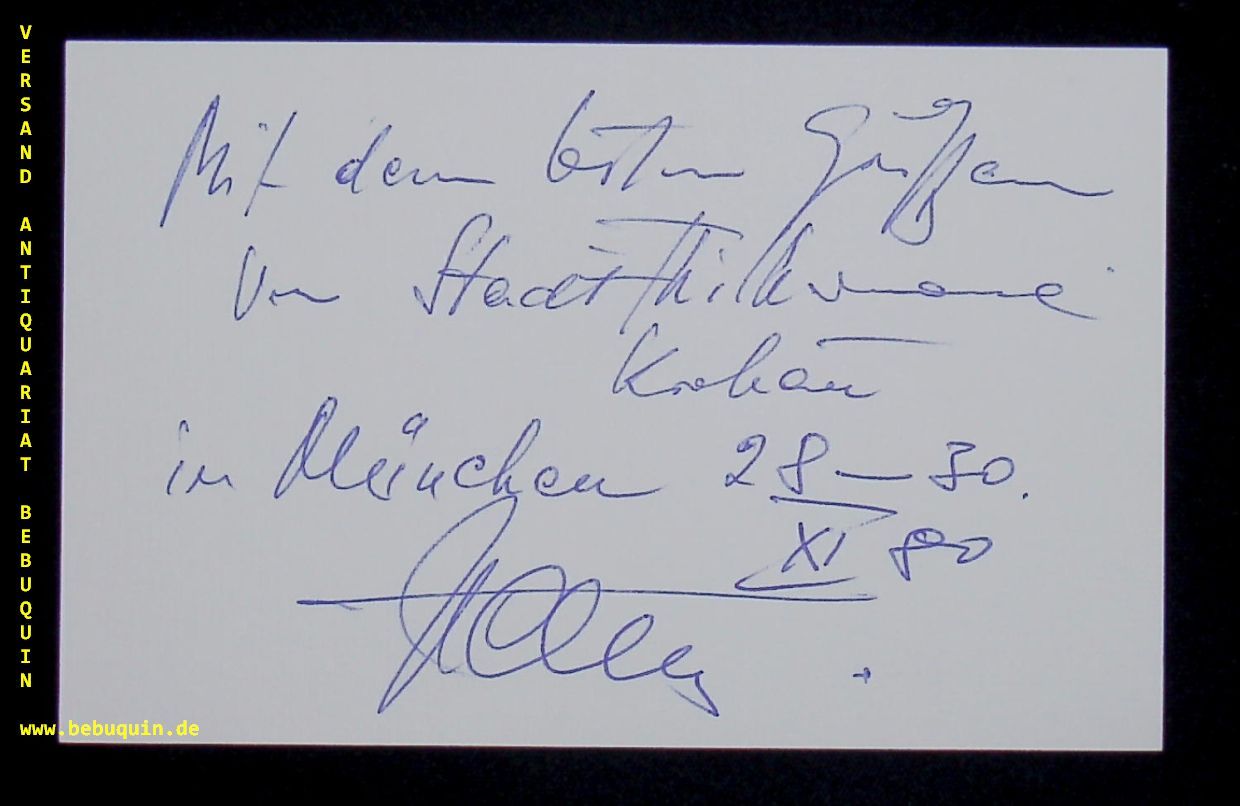 VERSAND ANTIQUARIAT BEBUQUIN
Mit den besten Grüßen
Von Stadt
Krakau
in München 28 – 30.
XI 80
www.bebuquin.de